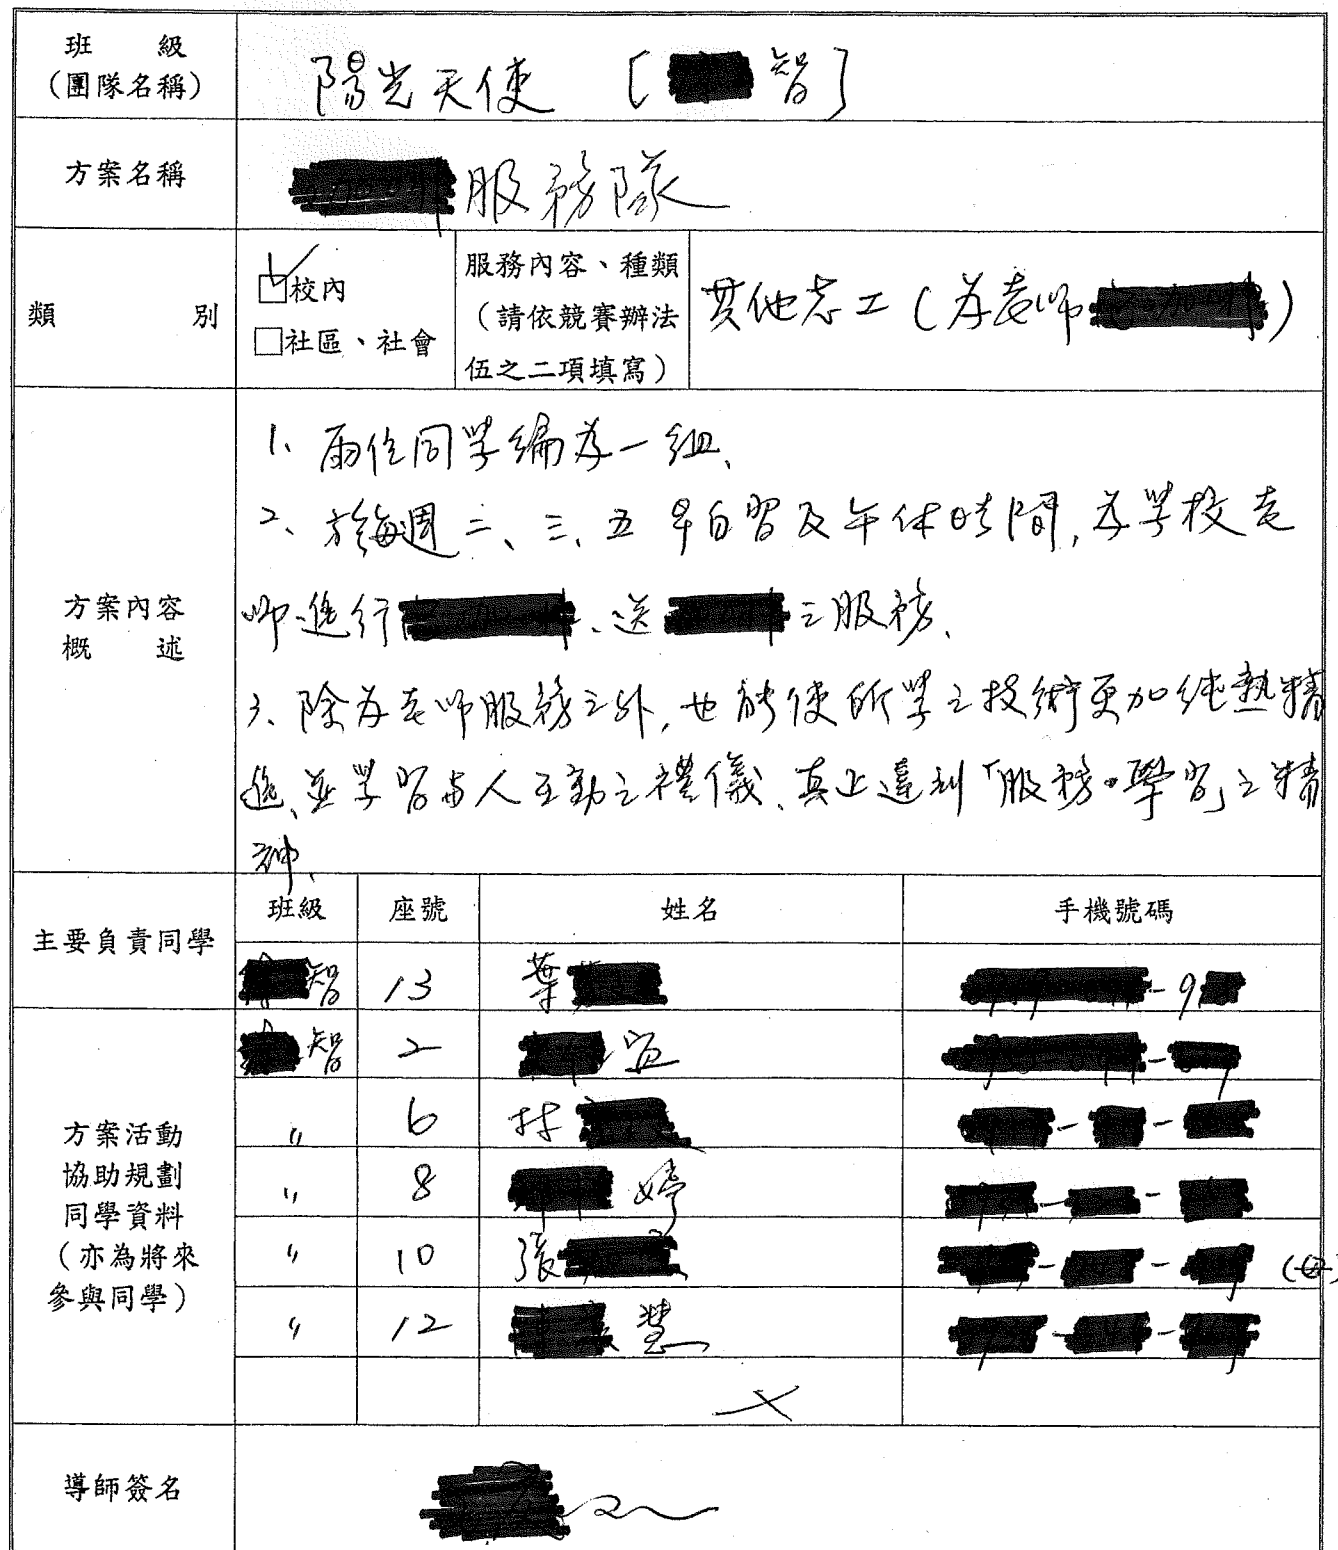 班 級
(團隊名稱)
陽光天使 [ 智]
方案名稱
服務隊
類 別
校內
社區、社會
服務內容、種類
(請依競賽辦法
伍之二項填寫)
其他志工(為老師 )
方案內容
概 述
1、兩位同學編為一組、
2、於每週二、三、五早自習及午休時間,為學校老
師進行 、送 之服務、
3、除為老師服務之外,也能使所學之技術更加純熟精
進、並學習與人互動之禮儀、真正達到「服務·學習」之精
神、
主要負責同學
班級 座號 姓名 手機號碼
智 13 葉 - 9
方案活動
協助規劃
同學資料
(亦為將來
參與同學)
智 2 宜 -
〃 6 林 - -
〃 8 婷 - -
〃 10 張 - -
〃 12 慧 - -
導師簽名